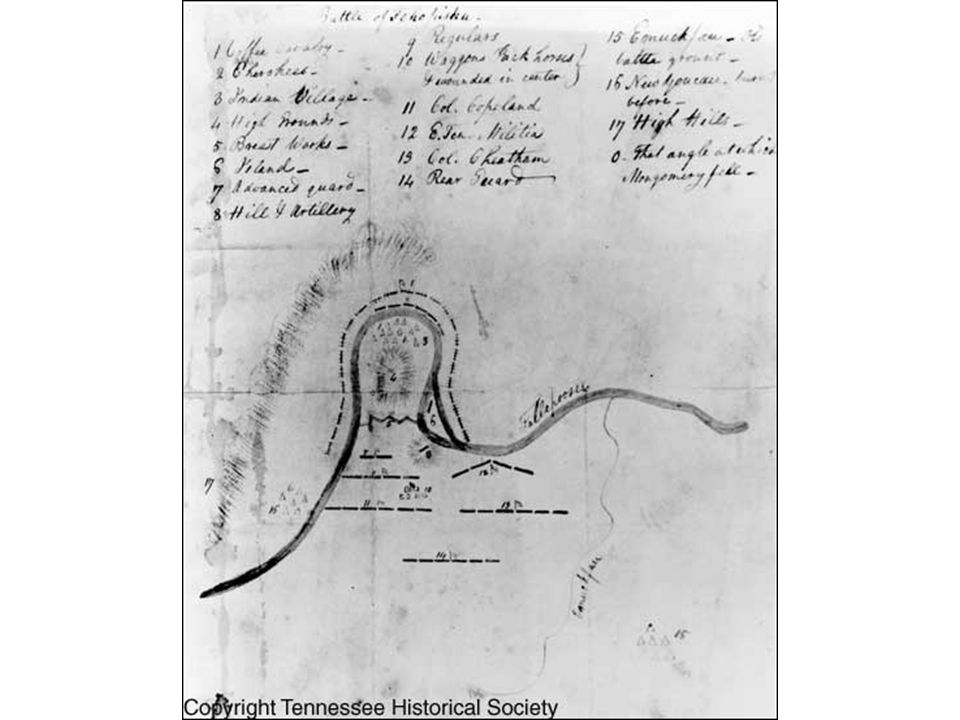 Battle of Tehopiska.
1 Coffee Cavalry -
2 Cherokees -
3 Indian Village -
4 High Grounds -
5 Breast Works -
6 Island -
7 Advanced guard -
8 Hill & Artillery
9 Regulars
10 Waggons Pack horses
& wounded in center
11 Col. Copeland
12 E. Ten. Militia
13 Col. Cheatham
14 Rear Guard
15 Emuckfau - Old
battle ground -
16 New Youcau - burnt
before -
17 High Hills -
0 - That angle at which
Montgomery fell -
1
3
4
5
6
Tallapoosee
8
12
10
17
15
11
13
14
Emuckfau
15
Copyright Tennessee Historical Society